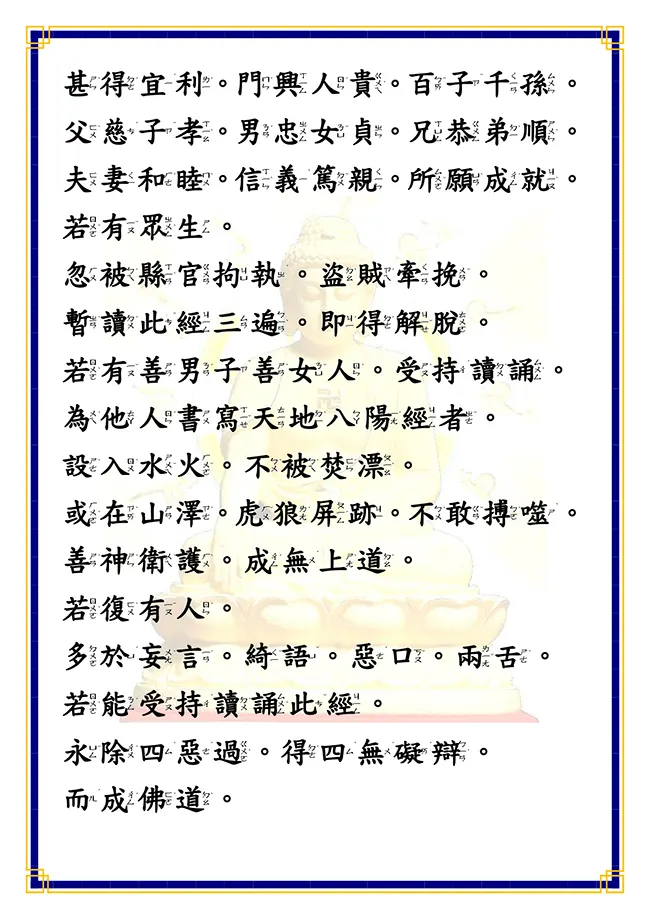 甚得宜利。門興人貴。百子千孫。
父慈子孝。男忠女貞。兄恭弟順。
夫妻和睦。信義篤親。所願成就。
若有眾生。
忽被縣官拘執。盜賊牽挽。
暫讀此經三遍。即得解脫。
若有善男子善女人。受持讀誦。
為他人書寫天地八陽經者。
設入水火。不被焚漂。
或在山澤。虎狼屏跡。不敢搏噬。
善神衛護。成無上道。
若復有人。
多於妄言。綺語。惡口。兩舌。
若能受持讀誦此經。
永除四惡過。得四無礙辯。
而成佛道。